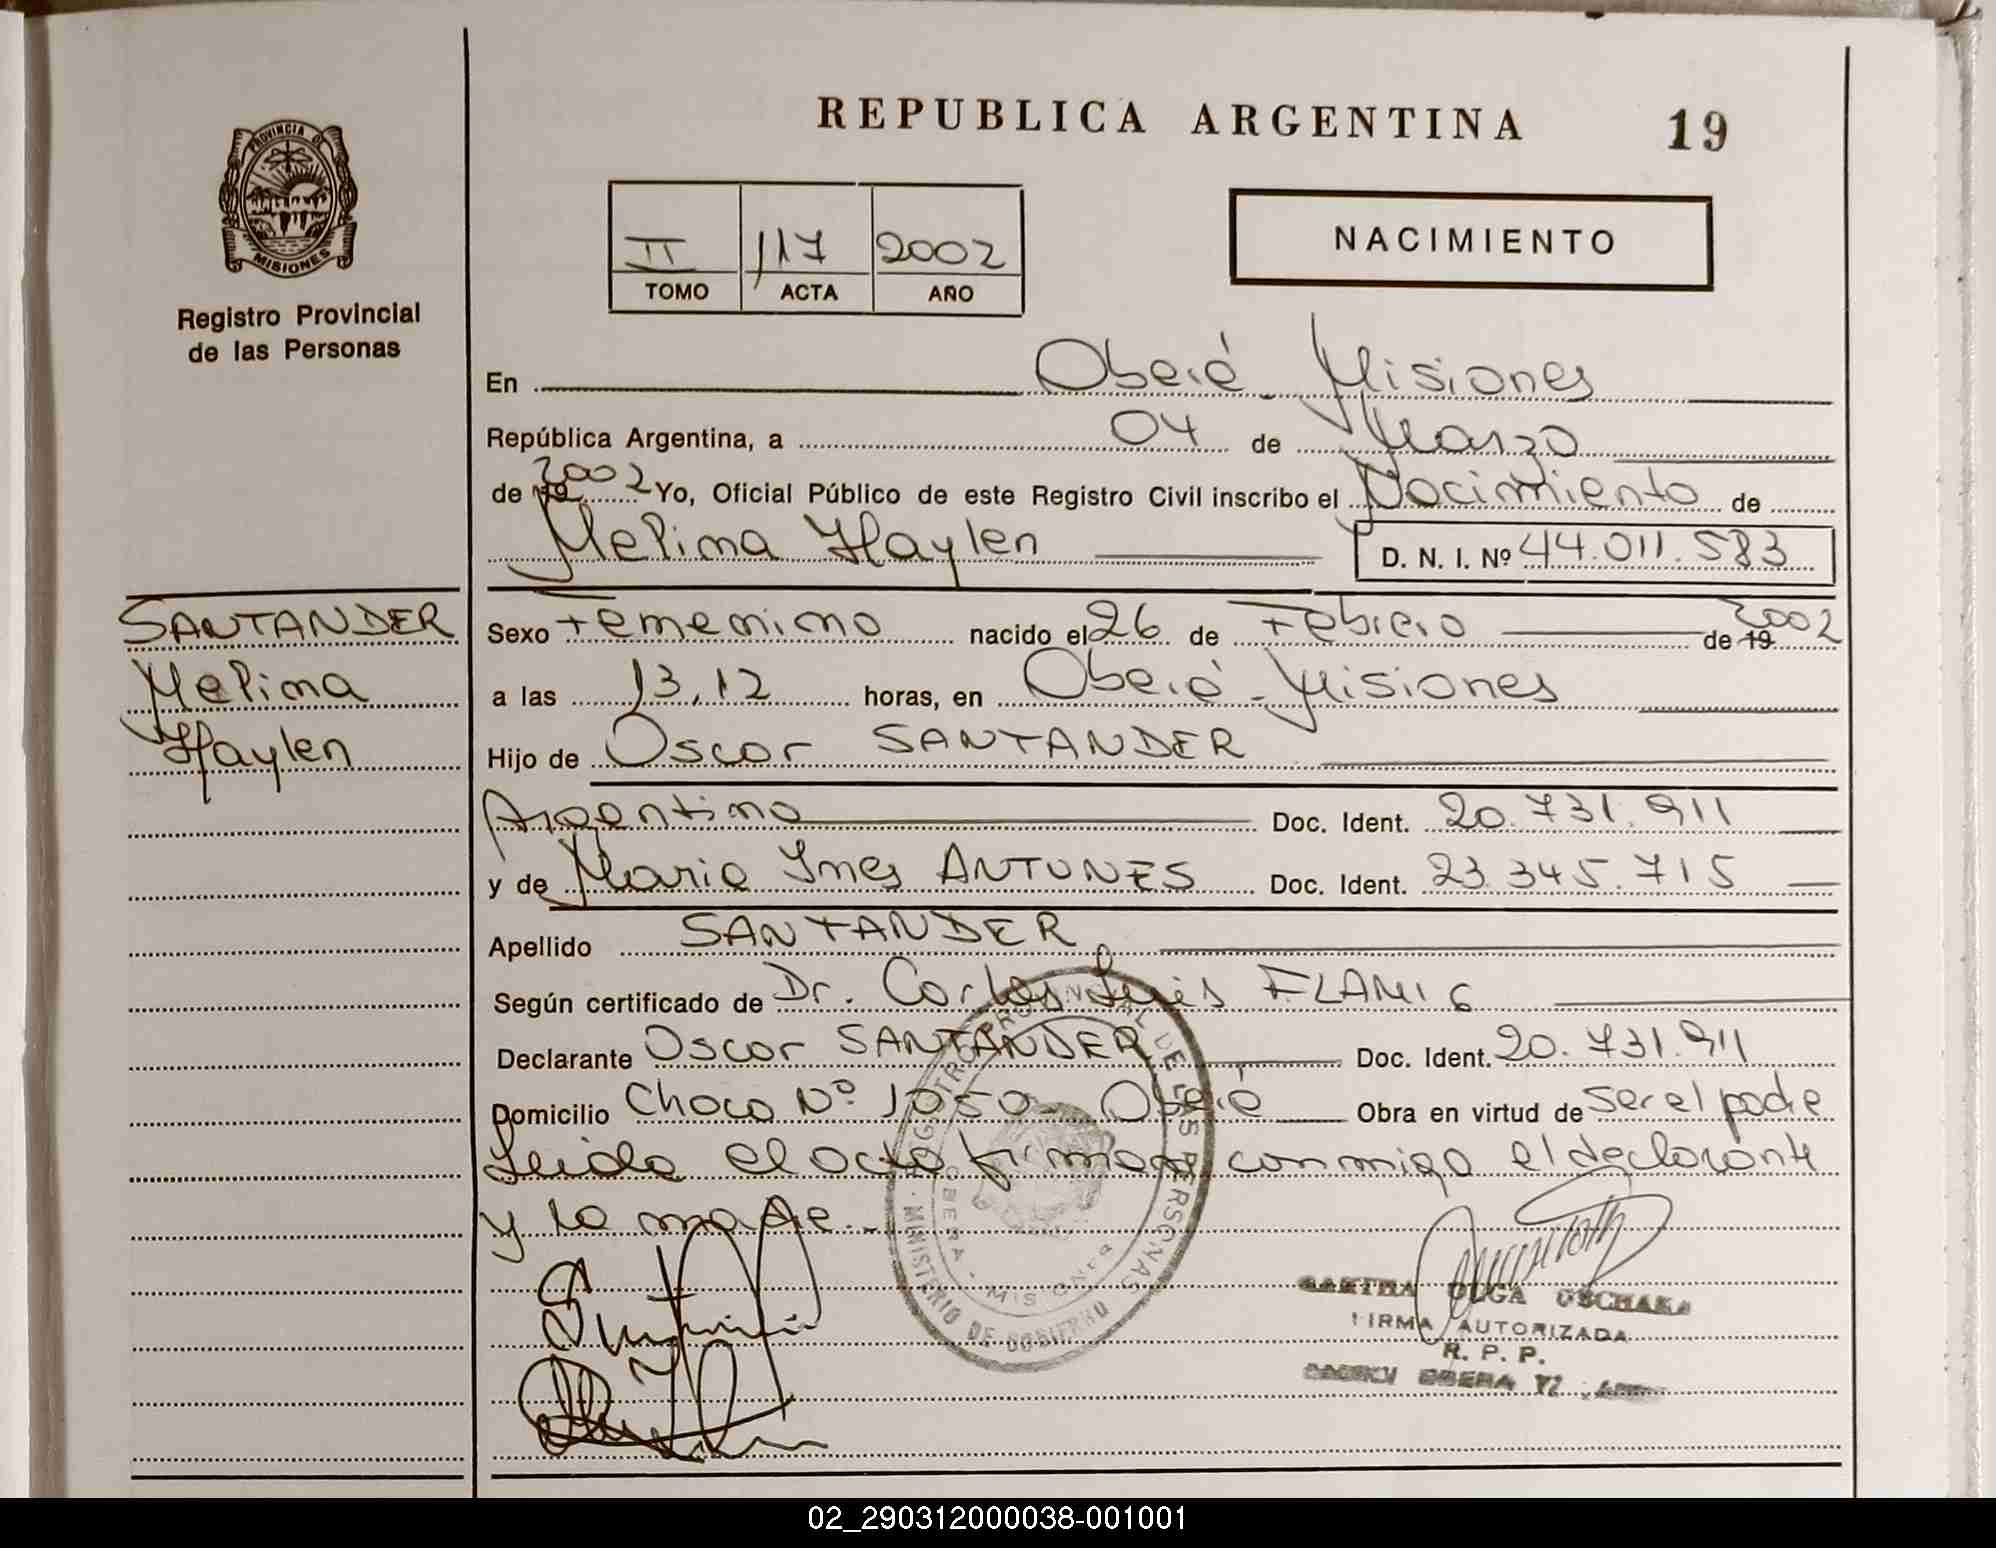 REPUBLICA ARGENTINA 19
PROVINCIA DE
MISIONES
Registro Provincial
de las Personas
II 117 2002
TOMO ACTA AÑO
NACIMIENTO
En Oberá Misiones
República Argentina, a 04 de Marzo
de 19 2002 Yo, Oficial Público de este Registro Civil inscribo el Nacimiento de
Melina Haylen D. N. I. Nº 44.011.583
SANTANDER
Melina
Haylen
Sexo Femenino nacido el 26 de Febrero de 19 2002
a las 13,12 horas, en Oberá - Misiones
Hijo de Oscar SANTANDER
Argentino Doc. Ident. 20.731.911
y de Maria Ines ANTUNES Doc. Ident. 23.345.715
Apellido SANTANDER
Según certificado de Dr. Carlos Luis FLAMIG
Declarante Oscar SANTANDER Doc. Ident. 20.731.911
Domicilio Choco Nº 1050 - Oberá Obra en virtud de ser el padre
Leida el acta firman conmigo el declarante
y la madre.-
REGISTRO PROVINCIAL DE LAS PERSONAS
MINISTERIO DE GOBIERNO
OBERA - MISIONES
OLGA
FIRMA AUTORIZADA
R. P. P.
OBERA
02_290312000038-001001